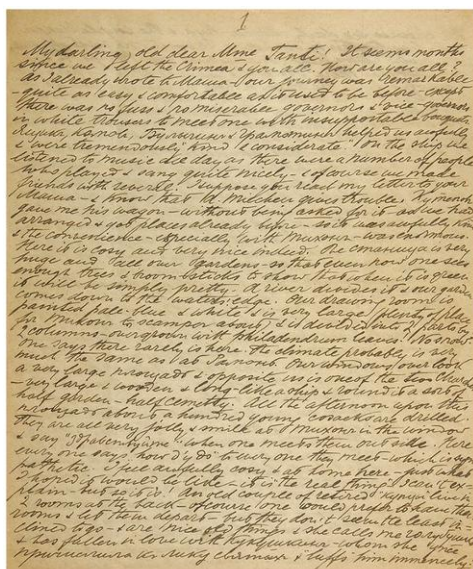 1
My darling, old dear Mme Tansi! It seems months
since we left the Crimea & you all. How are you all?
as I already wrote to Mama - our journey was remarkable
- quite as easy & comfortable as it used to be before - except
there was no fuss & no miserable governors & vice-governors
in white trousers to meet one with insupportable bouquets
helped us awfully
& were tremendously kind & considerate. On the ship we
listened to music all day as there were a number of people
who played & sang quite nicely - & of course we made
friends with several. I suppose you read my letter to your
Mama - & know that
gave me his wagon - without being asked for it - as we had
arranged & got places already here - so it was awfully kind
& the convenience - especially with was enormous.
Here it is cosy and very nice indeed. The is very
huge and all over gardens - so that even now one sees
enough trees & broomsticks to show that when it is green
it will be simply pretty. A river divides it & our garden
comes down to the water's edge. Our drawing room is
painted pale-blue & white & is very large (plenty of place
for to scamper about) & is divided into 2 parts by
2 columns - overgrown with philadendrum leaves! No snow
one says there rarely is here. The climate probably is very
much the same as at Our windows overlook
a very large & opposite us is one of the churches
- very large & wooden & looks like a ship & round it a sort of
half garden - half cemetry. All the afternoon upon the
about a hundred young are drilled
they are all very jolly & smile at in the window
& say when one meets them outside. Here
every one says "how d'y do" to every one they meet - which is sym-
pathetic. I feel awfully cosy & at home here - just what
I hoped it would be like - it is the real thing! I can't ex-
plain - but so it is! An old couple of retired live
in rooms at the back - of course one would prefer to have the
rooms & let them depart - but they don't seem the least in-
clined to go - & are nice old things & she calls me
& has fallen in love with whom she
& stuffs him immensely